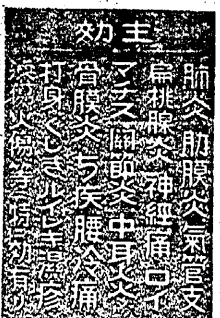 主効
肺炎肋膜炎氣管支
扁桃腺炎神経痛ロイ
マチス関節炎中耳炎
骨膜炎ぢ疾腰冷痛
打身くじきルイレキ湿疹
火傷等ニ特効有リ